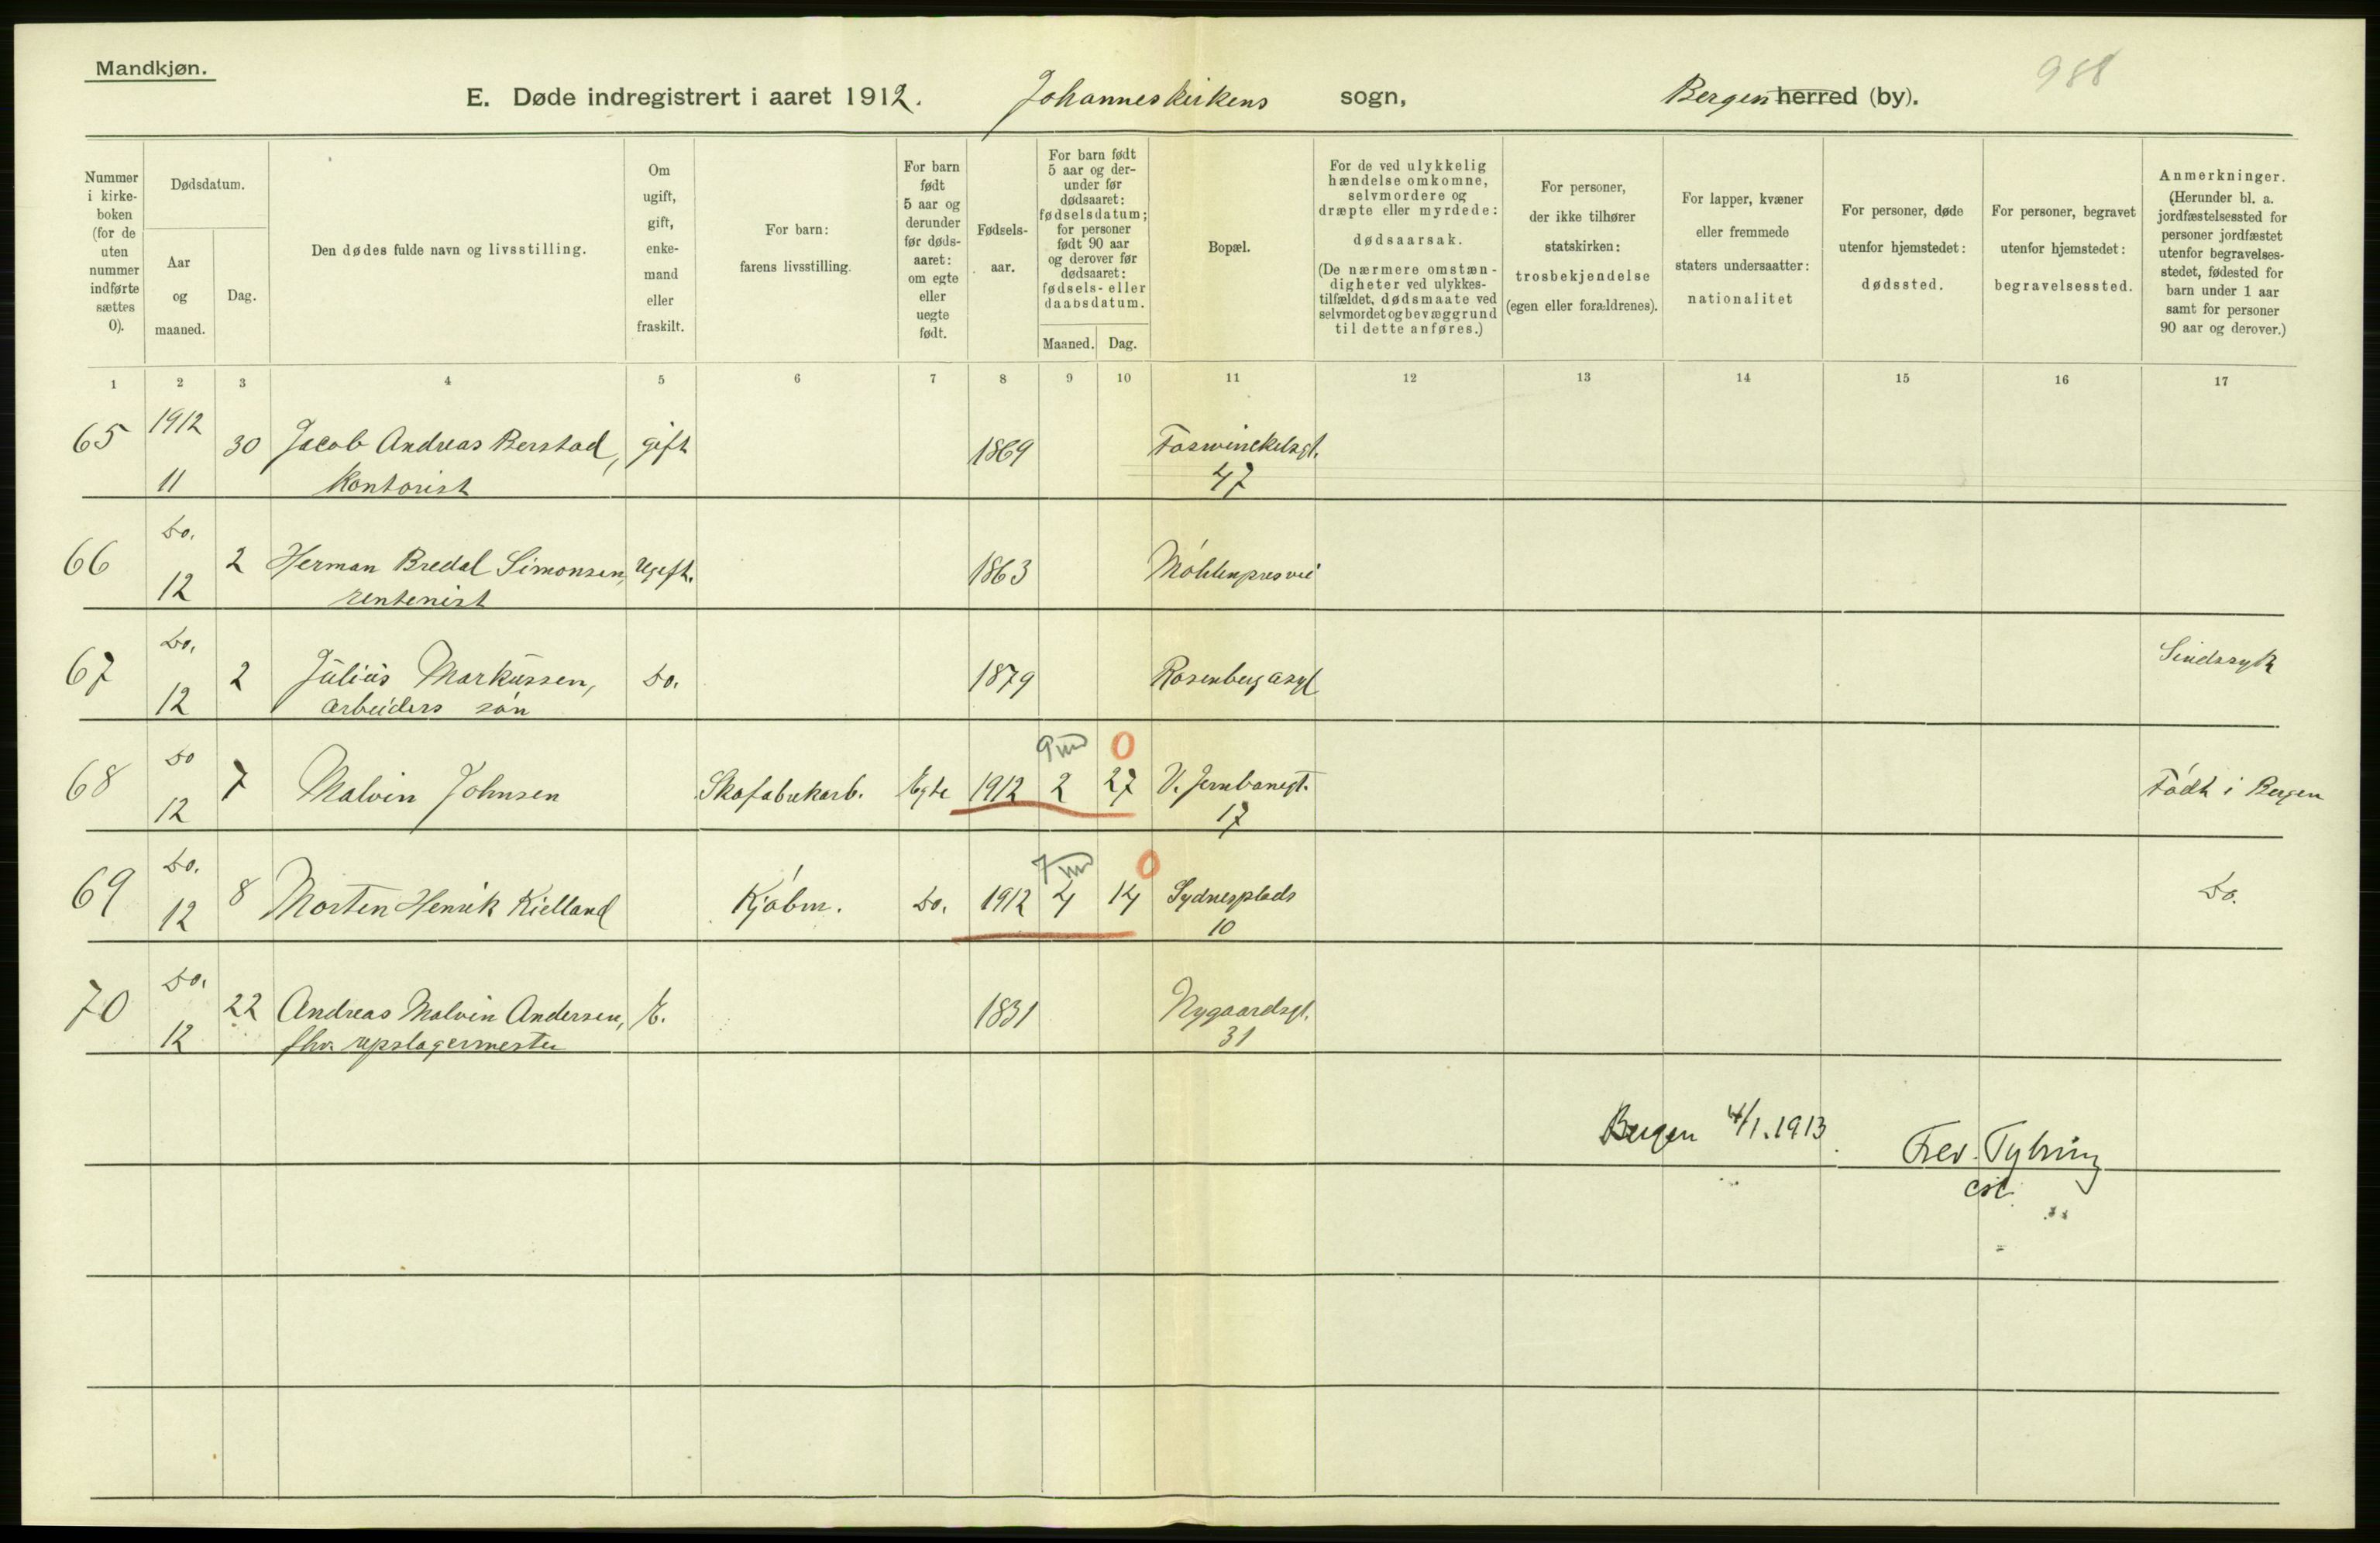 Mandkjøn.
988
E. Døde indregistrert i aaret 1912. Johanneskirkens sogn, Bergen herred (by).
Nummer i kirke-boken (for de uten nummer indførte sættes 0).
Dødsdatum.
Aar og maaned.
Dag.
Den dødes fulde navn og livsstilling.
Om ugift, gift, enke-mand eller fraskilt.
For barn: farens livsstilling.
For barn født 5 aar og derunder før døds-aaret: om egte eller uegte født.
Fødsels-aar.
For barn født 5 aar og der-under før dødsaaret: fødselsdatum; for personer født 90 aar og derover før dødsaaret: fødsels- eller daabsdatum.
Maaned. Dag.
Bopæl.
For de ved ulykkelig hændelse omkomne, selvmordere og dræpte eller myrdede: dødsaarsak. (De nærmere omstæn-digheter ved ulykkes-tilfældet, dødsmaate ved selvmordet og bevæggrund til dette anføres.)
For personer, der ikke tilhører statskirken: trosbekjendelse (egen eller forældrenes).
For lapper, kvæner eller fremmede staters undersaatter: nationalitet
For personer, døde utenfor hjemstedet: dødssted.
For personer, begravet utenfor hjemstedet: begravelsessted.
Anmerkninger. (Herunder bl. a. jordfæstelsessted for personer jordfæstet utenfor begravelses-stedet, fødested for barn under 1 aar samt for personer 90 aar og derover.)
1 2 3 4 5 6 7 8 9 10 11 12 13 14 15 16 17
65 1912 30 Jacob Andreas Berstad, gift 1869 Foswinckelsgt.
11 Kontorist 47
66 Do. 2 Herman Bredal Simonsen, Ugift. 1863 Möhlenprisvei
12 rentenist
67 Do. 2 Julius Markussen, Do. 1879 Rosenberg asyl Sindssyk
12 arbeiders søn
9 m 0
68 Do 7 Malvin Johnsen Skofabrikarb. Egte 1912 2 27 V. Jernbanegt. Född i Bergen
12 17
7 m 0
69 Do. 8 Morten Henrik Kielland Kjøbm. Do. 1912 4 14 Sydnesplads Do.
12 10
70 Do. 22 Andreas Malvin Andersen, E. 1831 Nygaardsgt.
12 fhv. repslagermester 31
Bergen 4/1. 1913. Fred.
cst.